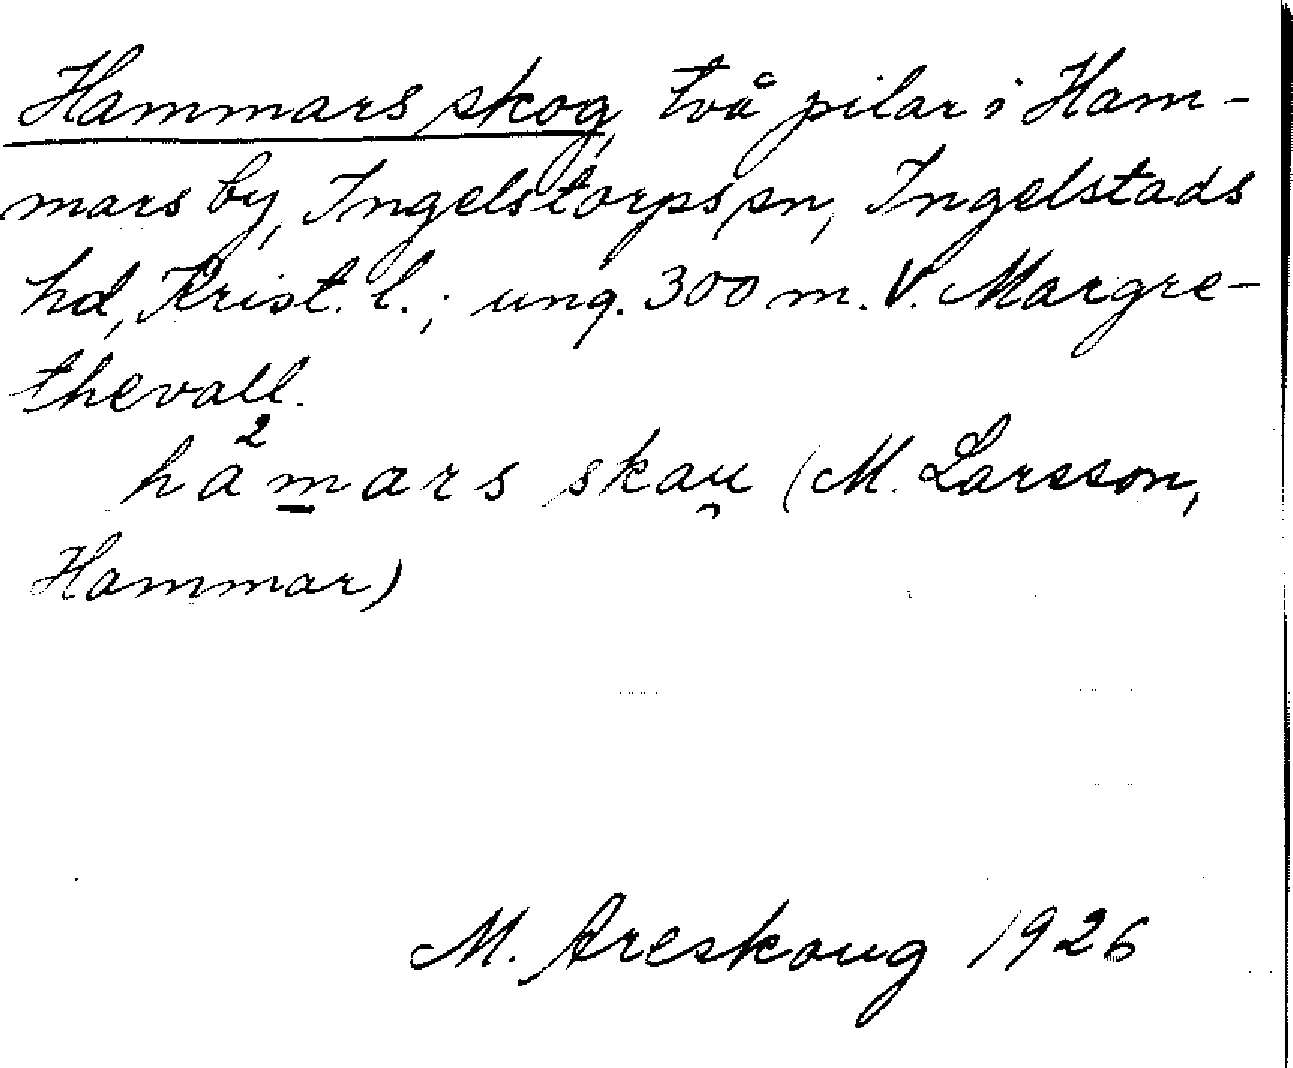 Hammars skog, två pilar i Ham-
mars by, Ingelstorps sn, Ingelstads
hd, Krist. l.; ung. 300 m. V. Margre-
thevall.
ha²m̲ars skau̯ (M. Larsson,
Hammar)
M. Areskoug 1926